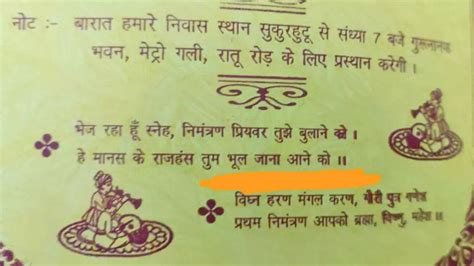 नोट :- बारात हमारे निवास स्थान सुकुरहुटू से संध्या 7 बजे गुरूनानक
भवन, मेट्रो गली, रातू रोड़ के लिए प्रस्थान करेगी ।
भेज रहा हूँ स्नेह, निमंत्रण प्रियवर तुझे बुलाने को ।
हे मानस के राजहंस तुम भूल जाना आने को ।।
विघ्न हरण मंगल करण, गौरी पुत्र गणेश
प्रथम निमंत्रण आपको ब्रह्मा, विष्णु, महेश ।।